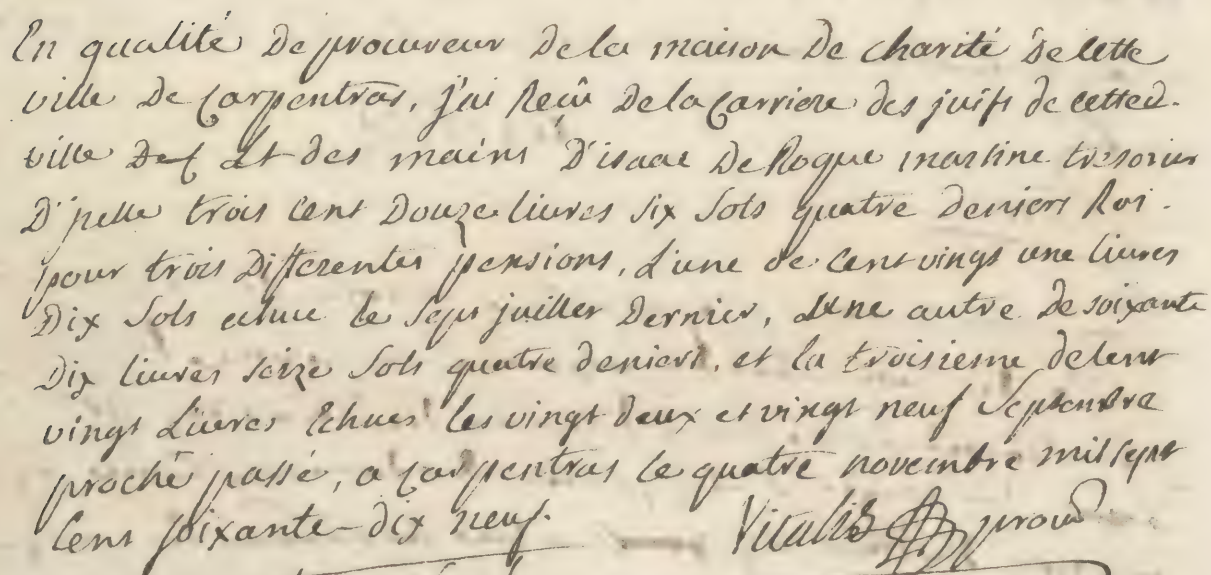 En qualité de procureur de la maison de charité de cette
ville de Carpentras, j'ai Reçu de la Carriere des juifs de cetted.
ville et des mains D'isaac De Roque martine tresorier
D'jcelle trois cent Douze livres six sols quatre deniers Roi.
pour trois Differentes pensions, L'une de cent vingt une livres
Dix sols echue le sept juillet Dernier, Une autre de soixante
Dix livres seize sols quatre deniers, et la troisieme de cent
vingt Livres Echues les vingt deux et vingt neuf Septembre
proché passé, a Carpentras le quatre novembre mil sept
Cent soixante-dix neuf. Vitalis